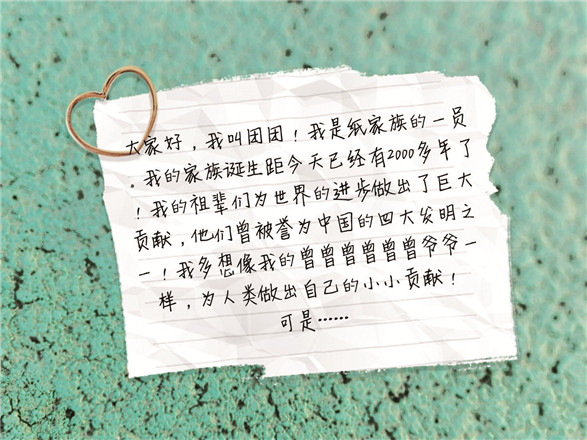 大家好，我叫团团！我是纸家族的一员
。我的家族诞生距今天已经有2000多年了
！我的祖辈们为世界的进步做出了巨大
贡献，他们曾被誉为中国的四大发明之
一！我多想像我的曾曾曾曾曾曾爷爷一
样，为人类做出自己的小小贡献！
可是……